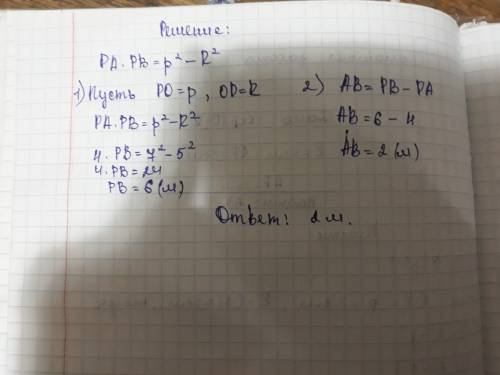 Решение:
PA · PB = p² - R²
1) Пусть PO = p, OD = R
PA · PB = p² - R²
4 · PB = 7² - 5²
4 · PB = 24
PB = 6 (м)
2) AB = PB - PA
AB = 6 - 4
AB = 2 (м)
Ответ: 2 м.